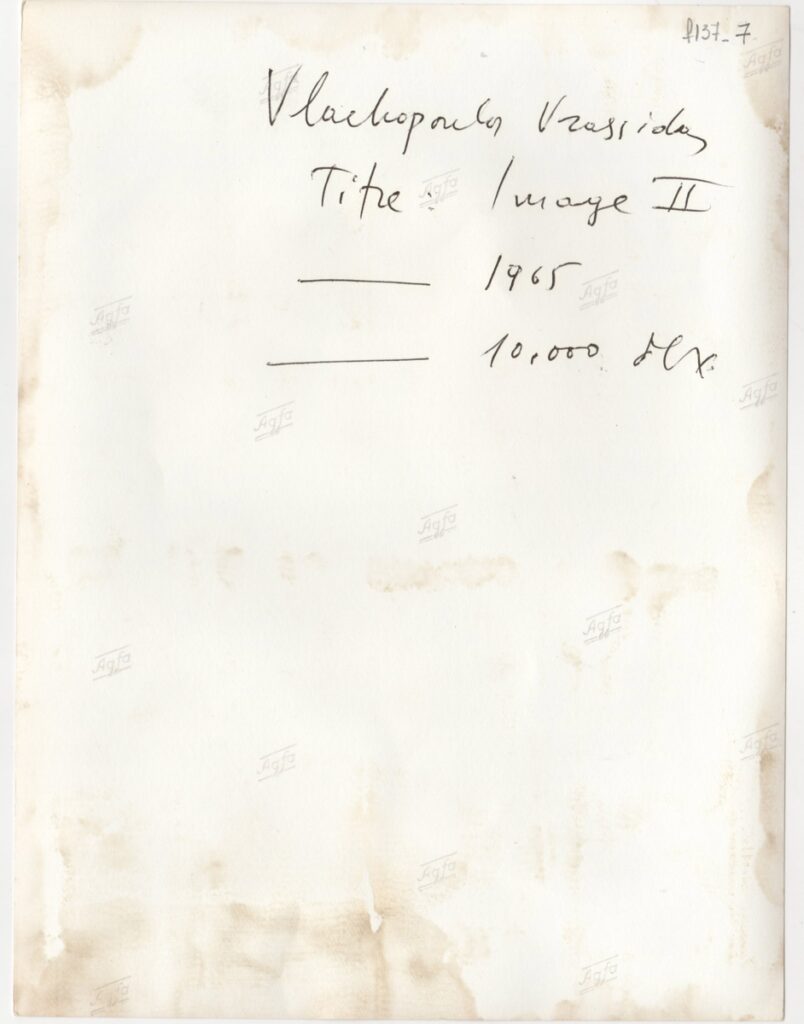 f137-7
Vlachopoulos Vrassidas
Titre : Image II
—— 1965
—— 10.000
Agfa
Agfa
Agfa
Agfa
Agfa
Agfa
Agfa
Agfa
Agfa
Agfa
Agfa
Agfa
Agfa
Agfa